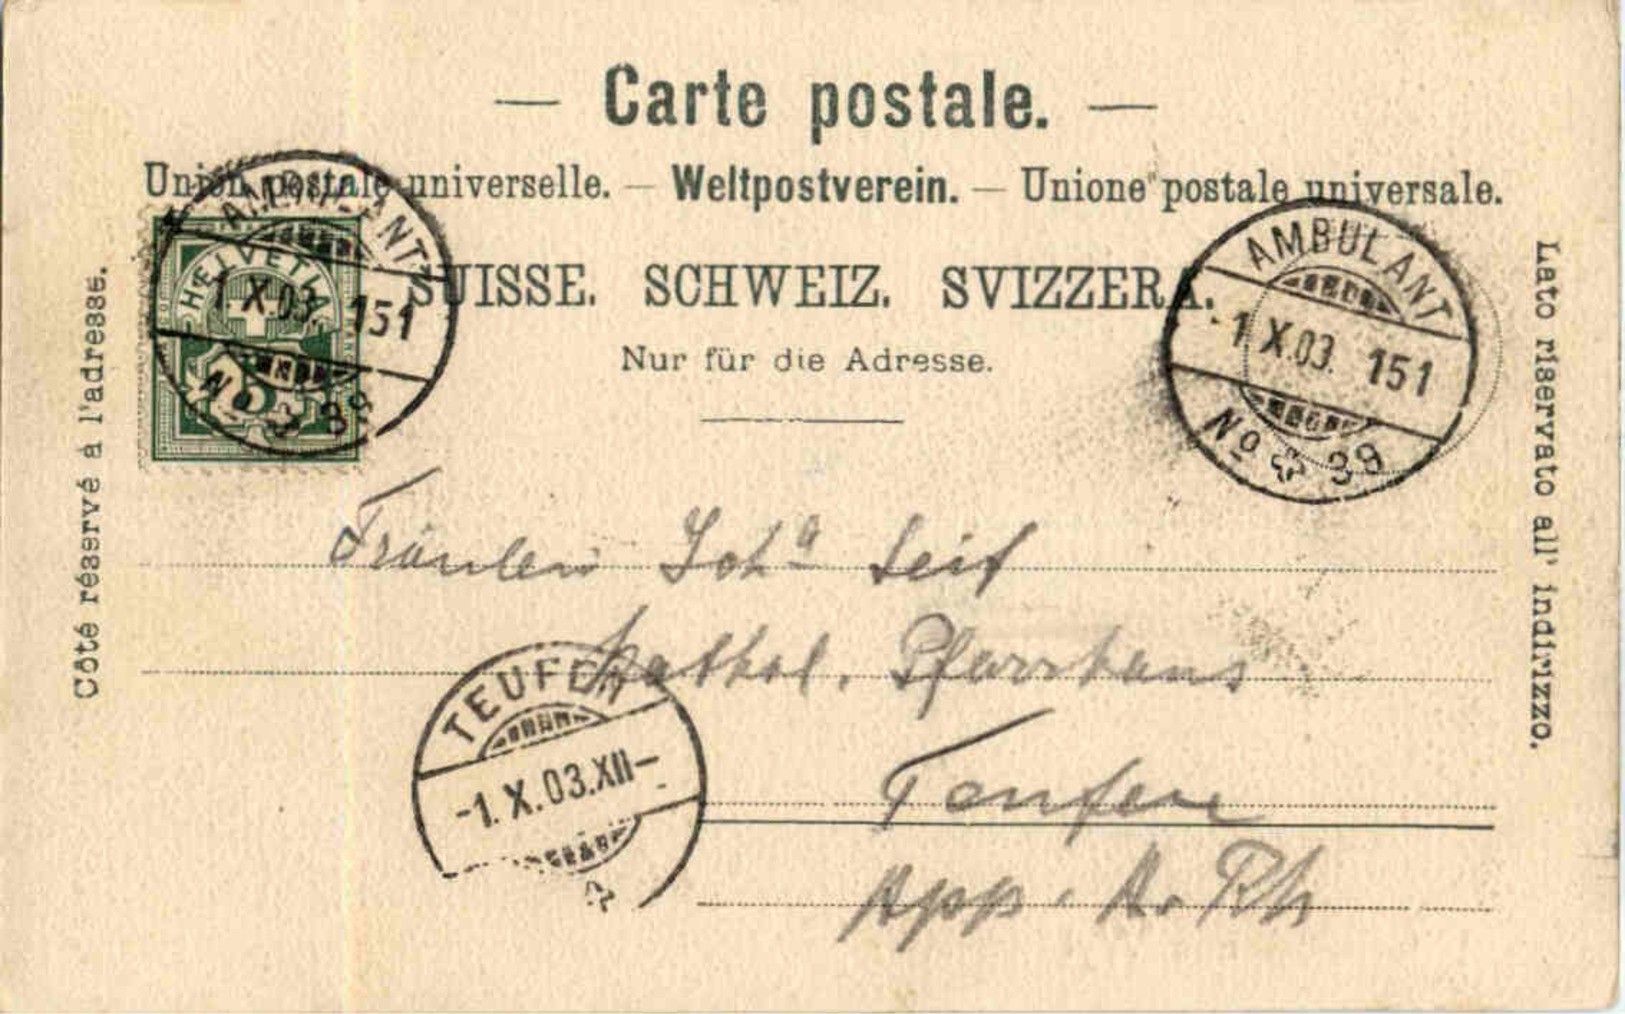 — Carte postale. —
Union postale universelle. — Weltpostverein. — Unione postale universale.
SUISSE. SCHWEIZ. SVIZZERA.
Nur für die Adresse.
Côté réservé à l'adresse.
Lato riservato all' indirizzo.
AMBULANT
1 X.03. 151
No 38
HELVETIA
5
AMBULANT
-1 X.03. 151
No 38
Fräulein Joha Seif
Kathol. Pfarrhaus
Teufen
App. A. Rh
TEUFEN
-1. X. 03. XII-